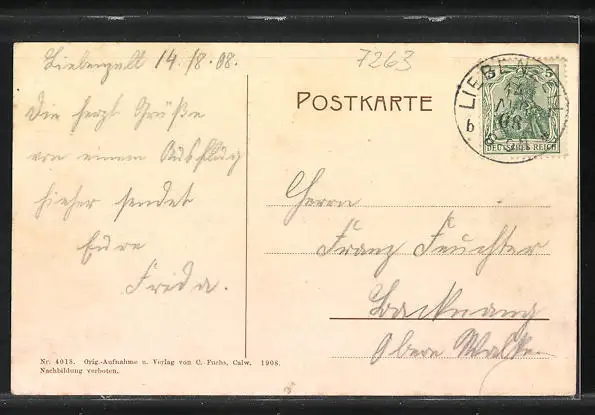 Liebenzell 14./8.08.
Die herzl. Grüße
von einem Ausflug
hieher sendet
Eure
Frida.
7263
POSTKARTE
LIEBENZELL
14
AUG
08
b
DEUTSCHES REICH
Herrn
Franz Feuchter
Backnang
Obere Walke
Nr. 4018. Orig.-Aufnahme u. Verlag von C. Fuchs, Calw. 1908.
Nachbildung verboten.